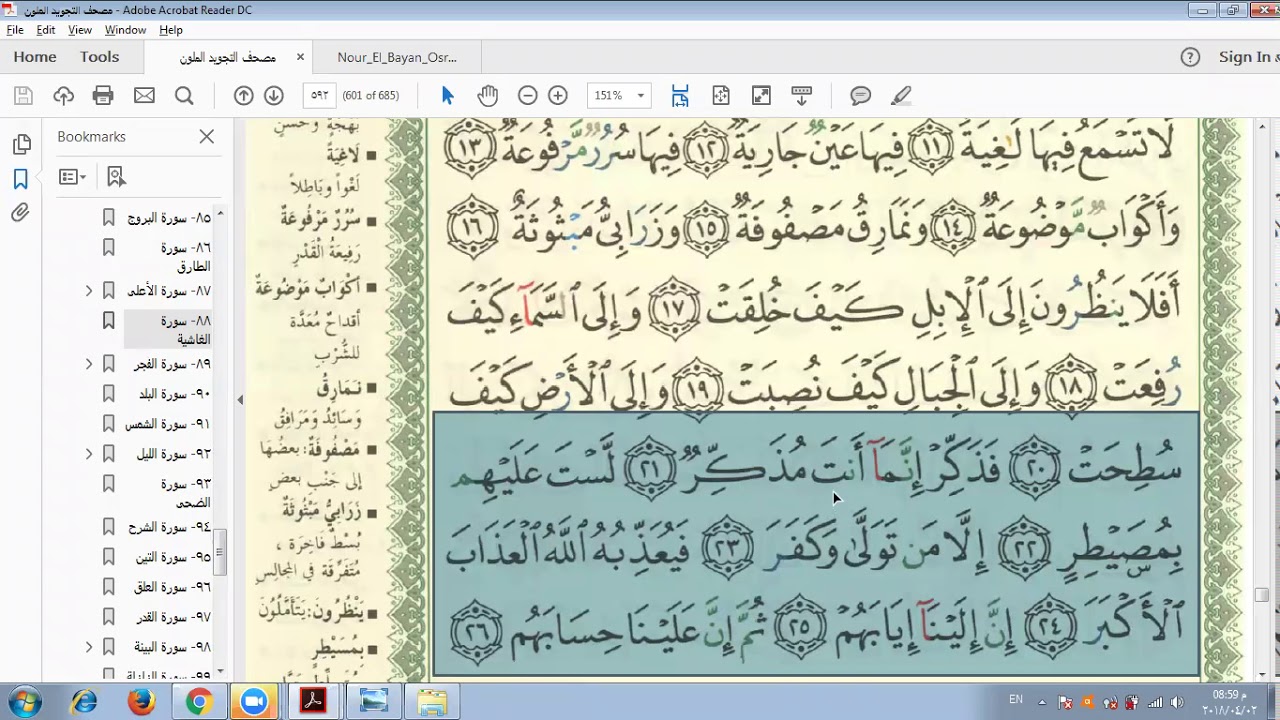 مصحف التجويد الملون - Adobe Acrobat Reader DC
File Edit View Window Help
Home Tools مصحف التجويد الملون × Nour_El_Bayan_Osr... Sign In
٥٩٢ (601 of 685) 151%
Bookmarks
٨٥- سورة البروج
٨٦- سورة
الطارق
٨٧- سورة الأعلى
٨٨- سورة
الغاشية
٨٩- سورة الفجر
٩٠- سورة البلد
٩١- سورة الشمس
٩٢- سورة الليل
٩٣- سورة
الضحى
٩٤- سورة الشرح
٩٥- سورة التين
٩٦- سورة العلق
٩٧- سورة القدر
٩٨- سورة البينة
٩٩- سورة الزلزلة
بَهْجَةٍ وَحُسْنٍ
لَاغِيَةً
لَغْواً وَبَاطِلاً
سُرُرٌ مَرْفُوعَةٌ
رَفِيعَةُ الْقَدْرِ
أَكْوَابٌ مَوْضُوعَةٌ
أَقْدَاحٌ مُعَدَّة
لِلشُّرْبِ
نَمَارِقُ
وَسَائِدُ وَمَرَافِقُ
مَصْفُوفَةٌ: بعضُهَا
إلى جَنْبِ بعض
زَرَابِيُّ مَبْثُوثَةٌ
بُسُطٌ فَاخِرَة ،
مُتَفَرِّقَة في المجالِسِ
يَنْظُرُونَ: يَتَأَمَّلُونَ
بِمُسَيْطِرٍ
لَّا تَسْمَعُ فِيهَا لَٰغِيَةً ١١ فِيهَا عَيْنٌ جَارِيَةٌ ١٢ فِيهَا سُرُرٌ مَّرْفُوعَةٌ ١٣
وَأَكْوَابٌ مَّوْضُوعَةٌ ١٤ وَنَمَارِقُ مَصْفُوفَةٌ ١٥ وَزَرَابِيُّ مَبْثُوثَةٌ ١٦
أَفَلَا يَنظُرُونَ إِلَى ٱلْإِبِلِ كَيْفَ خُلِقَتْ ١٧ وَإِلَى ٱلسَّمَآءِ كَيْفَ
رُفِعَتْ ١٨ وَإِلَى ٱلْجِبَالِ كَيْفَ نُصِبَتْ ١٩ وَإِلَى ٱلْأَرْضِ كَيْفَ
سُطِحَتْ ٢٠ فَذَكِّرْ إِنَّمَآ أَنتَ مُذَكِّرٌ ٢١ لَّسْتَ عَلَيْهِم
بِمُصَۜيْطِرٍ ٢٢ إِلَّا مَن تَوَلَّىٰ وَكَفَرَ ٢٣ فَيُعَذِّبُهُ ٱللَّهُ ٱلْعَذَابَ
ٱلْأَكْبَرَ ٢٤ إِنَّ إِلَيْنَآ إِيَابَهُمْ ٢٥ ثُمَّ إِنَّ عَلَيْنَا حِسَابَهُم ٢٦
EN
08:59 م
٢٠١٨/٠٤/٠٢